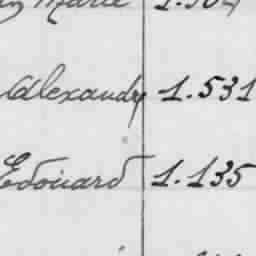 Marie 1.304
Alexandre 1.531
Edouard 1.135